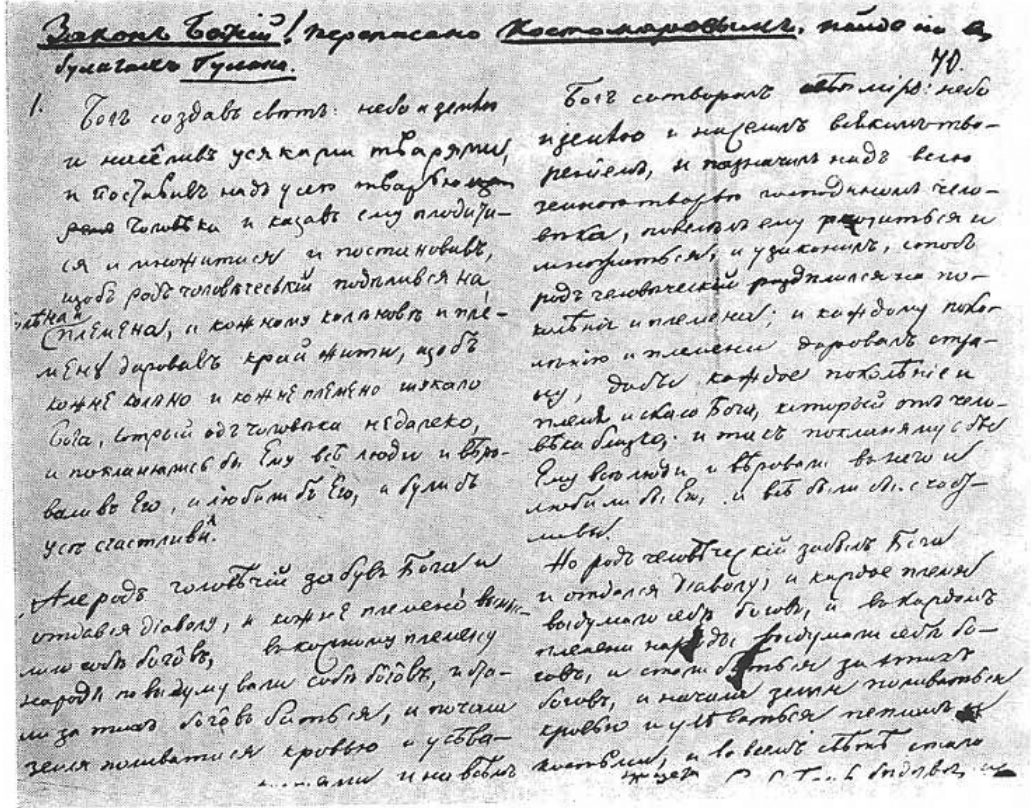 Законъ Божій! переписано Костомаровымъ. найдено в
бумагахъ Гулака.
70.
1.
Богъ создавъ свѣтъ: небо и землю
и населивъ усякими тварями,
и поставивъ надъ усею тварью
чоловѣка и казавъ ему плодити-
ся и множитися и постановивъ,
щобъ родъ чоловѣческій подѣлився на
колѣна и
племена, и кожному колѣновѣ и пле-
мену даровавъ край жити, щобъ
кожне колѣно и кожне племено шукало
Бога, котрый одъ чоловѣка недалеко,
и покланялись бы Ему всѣ люди и вѣро-
вали въ Его, и любили бъ Его, и були бъ
усѣ счастливы.
Але родъ чоловѣчій забувъ Бога и
отдався діаволу, и кожне племено
собѣ богôвъ, въ кожному племену
народы повыдумували собѣ богôвъ, и
за тихъ богôвъ биться, и почала
земля поливатися кровью и
и на всѣмъ
Богъ сотворилъ міръ: небо
и землю и населилъ всякимъ тво-
реніемъ, и назначилъ надъ всею
земною тварью господиномъ чело-
вѣка, повелѣлъ ему и
множиться, и узаконилъ, чтобъ
родъ человѣческій раздѣлился на по-
колѣнія и племена; и каждому поко-
лѣнію и племени даровалъ стра-
ну, дабы каждое поколѣніе и
племя искало Бога, который отъ чело-
вѣка близко; и
Ему всѣ люди и вѣровали въ него и
любили бы Его, и всѣ были бы счаст-
ливы.
Но родъ человѣческій забылъ Бога
и отдался діаволу, и каждое племя
выдумало себѣ боговъ, и въ каждомъ
племени народы выдумали себѣ бо-
говъ, и стали биться за этихъ
боговъ, и начала земля поливаться
кровью и усѣваться пепломъ и
костьми, и во всемъ свѣтѣ стало